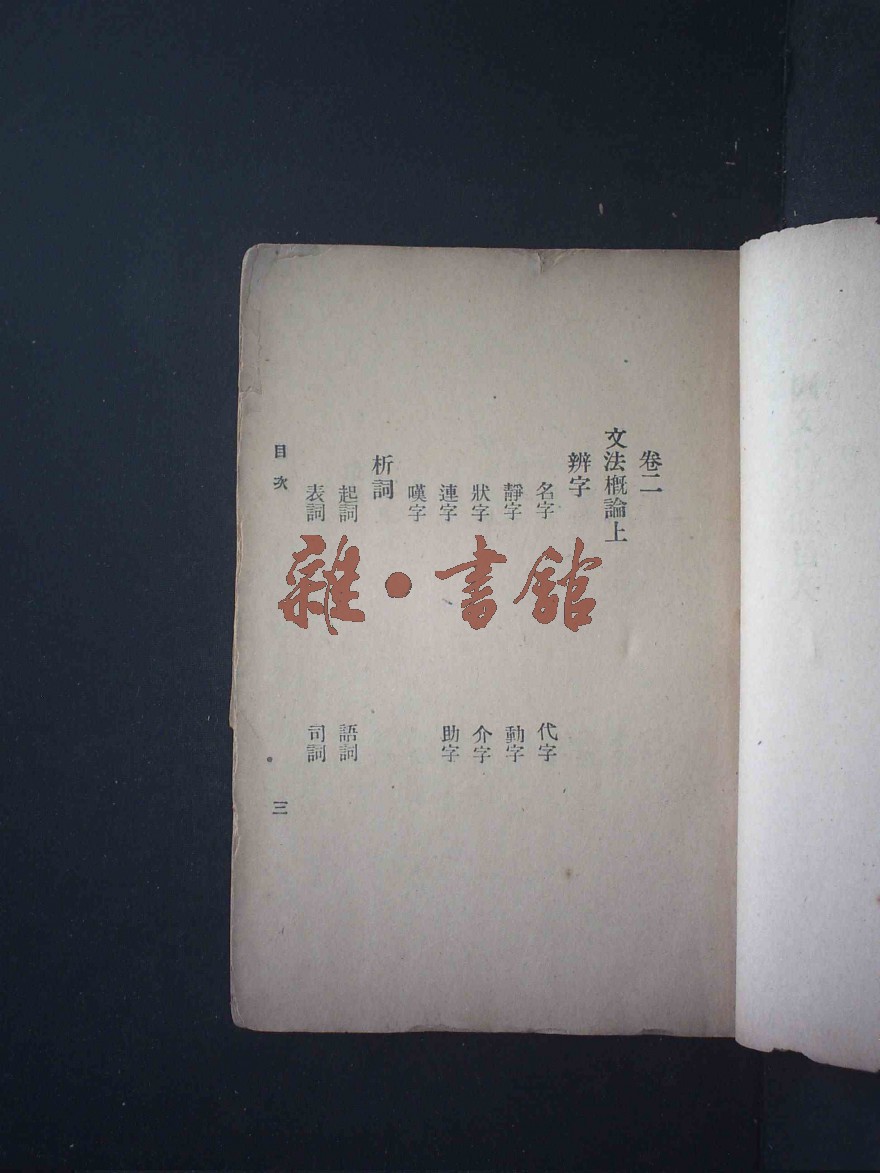 卷二
文法概論上
辨字
名字　代字
靜字　動字
狀字　介字
連字　助字
嘆字
析詞
起詞　語詞
表詞　司詞
目次　三
雜·書館